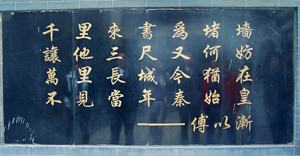 千里來書為堵墙
讓他三尺又何妨
萬里長城今猶在
不見當年秦始皇
——傅以漸